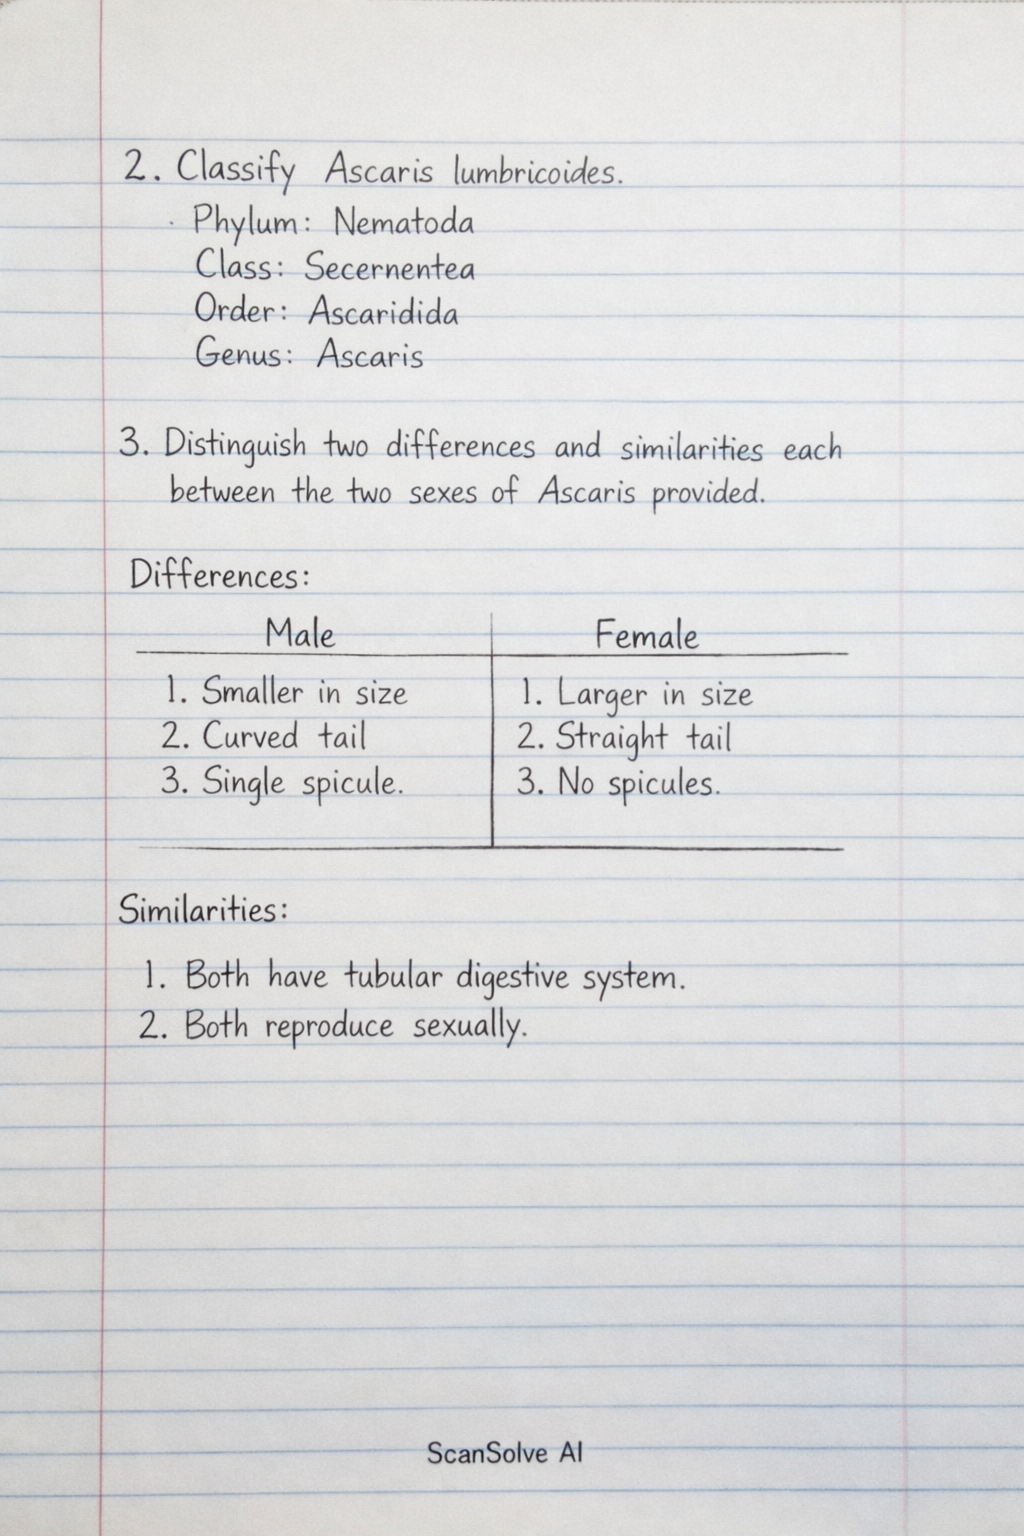 2. Classify Ascaris lumbricoides.
· Phylum: Nematoda
Class: Secernentea
Order: Ascaridida
Genus: Ascaris
3. Distinguish two differences and similarities each
between the two sexes of Ascaris provided.
Differences:
Male Female
1. Smaller in size 1. Larger in size
2. Curved tail 2. Straight tail
3. Single spicule. 3. No spicules.
Similarities:
1. Both have tubular digestive system.
2. Both reproduce sexually.
ScanSolve AI